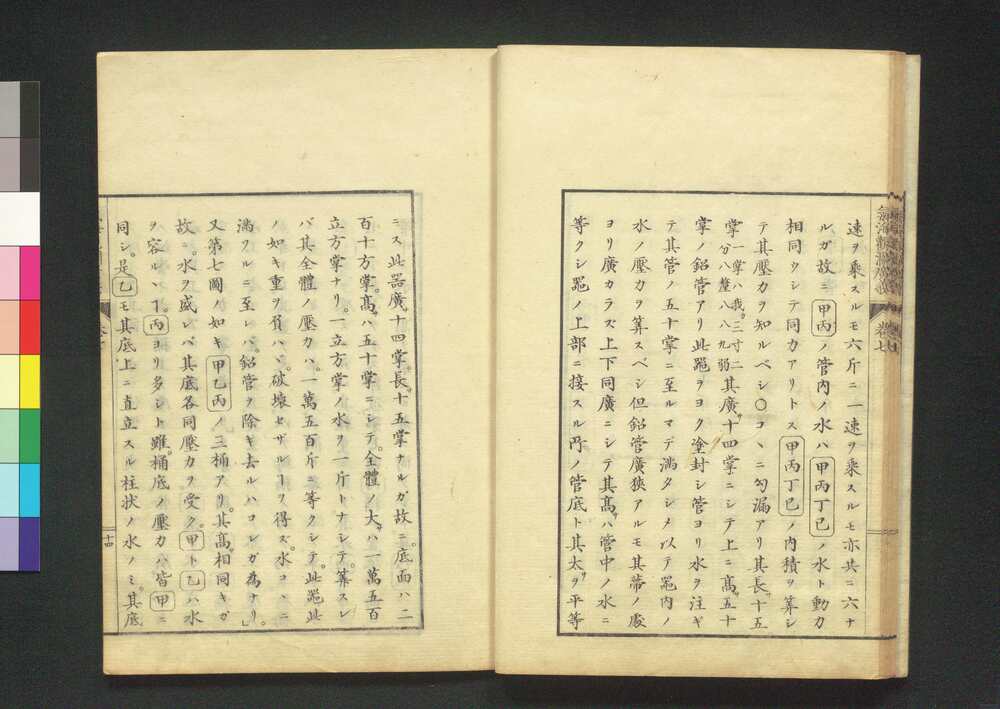 速ヲ乘スルモ六斤ニ一速ヲ乘スルモ亦共ニ六ナ
ルガ故ニ甲丙ノ管内ノ水ハ甲丙丁已ノ水ト動力
相同クシテ同力アリトス甲丙丁已ノ内積ヲ筭シ
テ其壓力ヲ知ルベシ〇コヽニ勾漏アリ其長サ十五
掌一掌ハ我三寸二分八釐八八九弱其廣サ十四掌ニシテ上ニ高サ五十
掌ノ鉛管アリ此噐ヲヨク塗封シ管ヨリ水ヲ注ギ
テ其管ノ五十掌ニ至ルマデ満タシメ以テ噐内ノ
水ノ壓力ヲ筭スベシ但鉛管廣狹アルモ其蒂ノ處
ヨリ廣カラズ上下同廣ニシテ其高サハ管中ノ水ニ
等クシ噐ノ上部ニ接スル所ノ管底ト其太サヲ平等
ニス此器廣サ十四掌。長サ十五掌ナルガ故ニ。底面ハ二
百十方掌。高サハ五十掌ニシテ。全體ノ大サハ一萬五百
立方掌ナリ。一立方掌ノ水ヲ一斤トナシテ。筭スレ
バ其全體ノ壓力ハ。一萬五百斤ニ等クシテ。此噐此
ノ如キ重ヲ負ハヾ。破壊セザルヿヲ得ズ。水コヽニ
満ツルニ至レバ。鉛管ヲ除キ去ルハコレガ為ナリ。」
又第七圖ノ如キ甲乙丙ノ三桶アリ。其高サ相同キガ
故ニ。水ヲ盛レバ其底各同壓力ヲ受ク。甲ト乙ハ水
ヲ容ルヽヿ。丙ヨリ多シト雖。桶底ノ壓力ハ皆甲ニ
同シ。是乙モ其底上ニ直立スル柱状ノ水ノミ。其底
卷七
十四